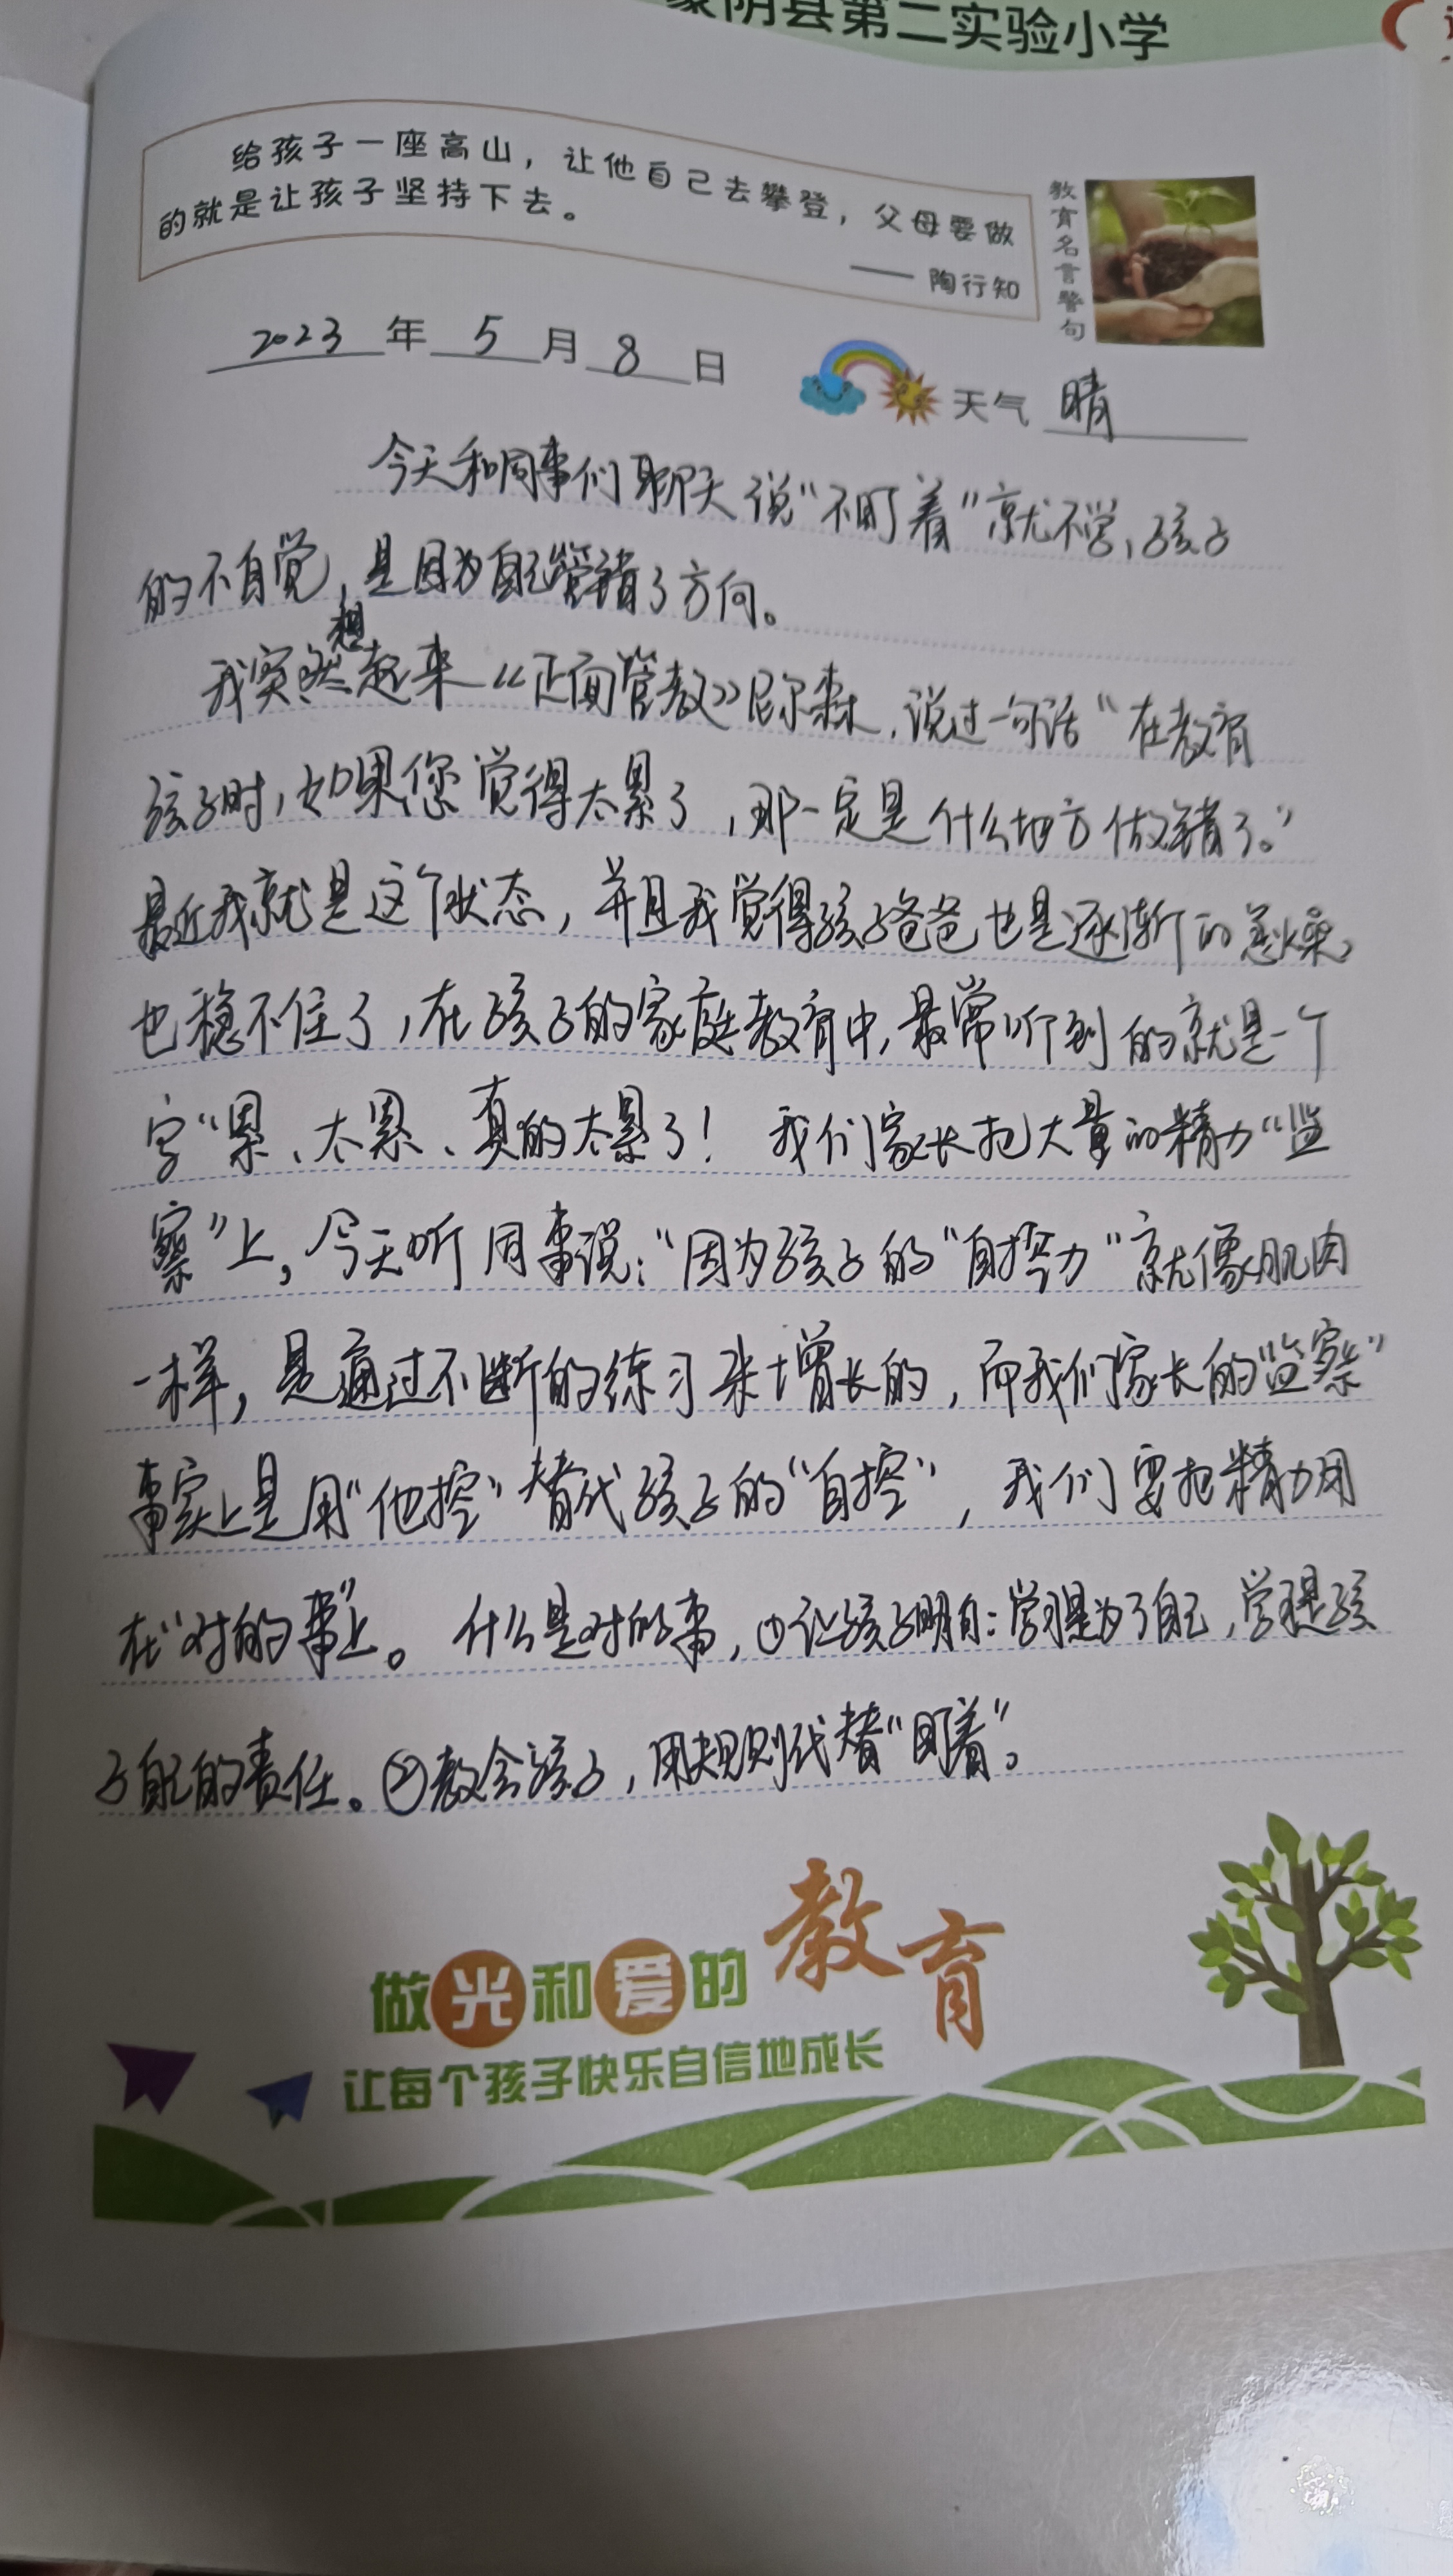 蒙阴县第二实验小学
给孩子一座高山，让他自己去攀登，父母要做
的就是让孩子坚持下去。
—— 陶行知
教育名言警句
2023 年 5 月 8 日
天气 晴
今天和同事们聊天说“不盯着”就不学，孩子
的不自觉，是因为自己管错了方向。
我突然想起来《正面管教》尼尔森，说过一句话“在教育
孩子时，如果您觉得太累了，那一定是什么地方做错了。”
最近我就是这个状态，并且我觉得孩子爸爸也是逐渐的急燥，
也稳不住了，在孩子的家庭教育中，最常听到的就是一个
字“累、太累、真的太累了！ 我们家长把大量的精力“监
察”上，今天听同事说：“因为孩子的“自控力”就像肌肉
一样，是通过不断的练习来增长的，而我们家长的“监察”
事实上是用“他控”替代孩子的“自控”，我们要把精力用
在“对的事”上。 什么是对的事，①让孩子明白：学习是为了自己，学习是孩
子自己的责任。②教会孩子，用规则代替“盯着”。
做光和爱的教育
让每个孩子快乐自信地成长